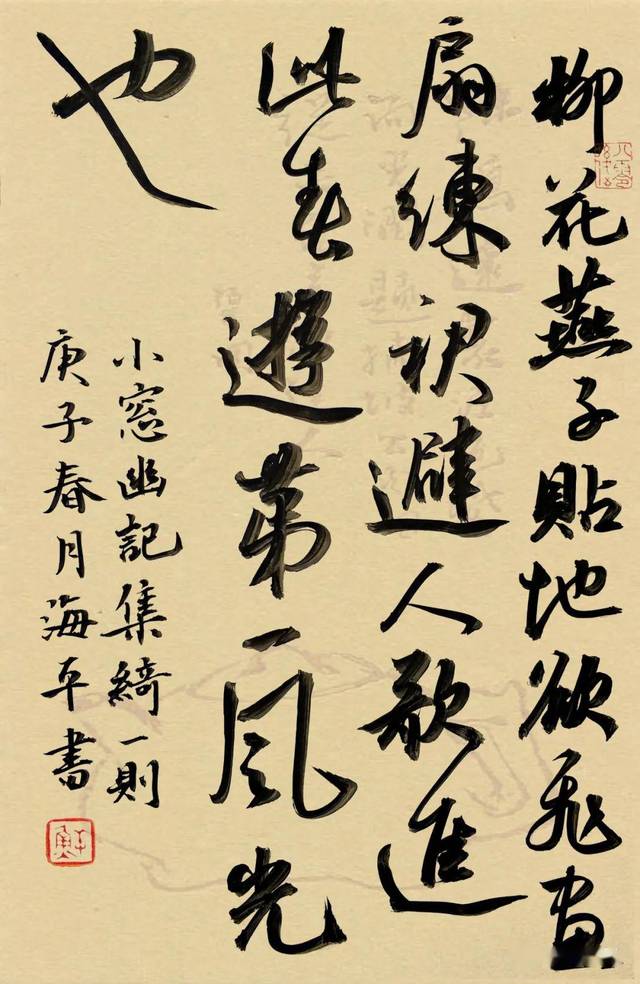 柳花燕子貼地欲飛畫
扇練裙避人欲進
此春遊第一風光
也
小窓幽記集綺一則
庚子春月海平書